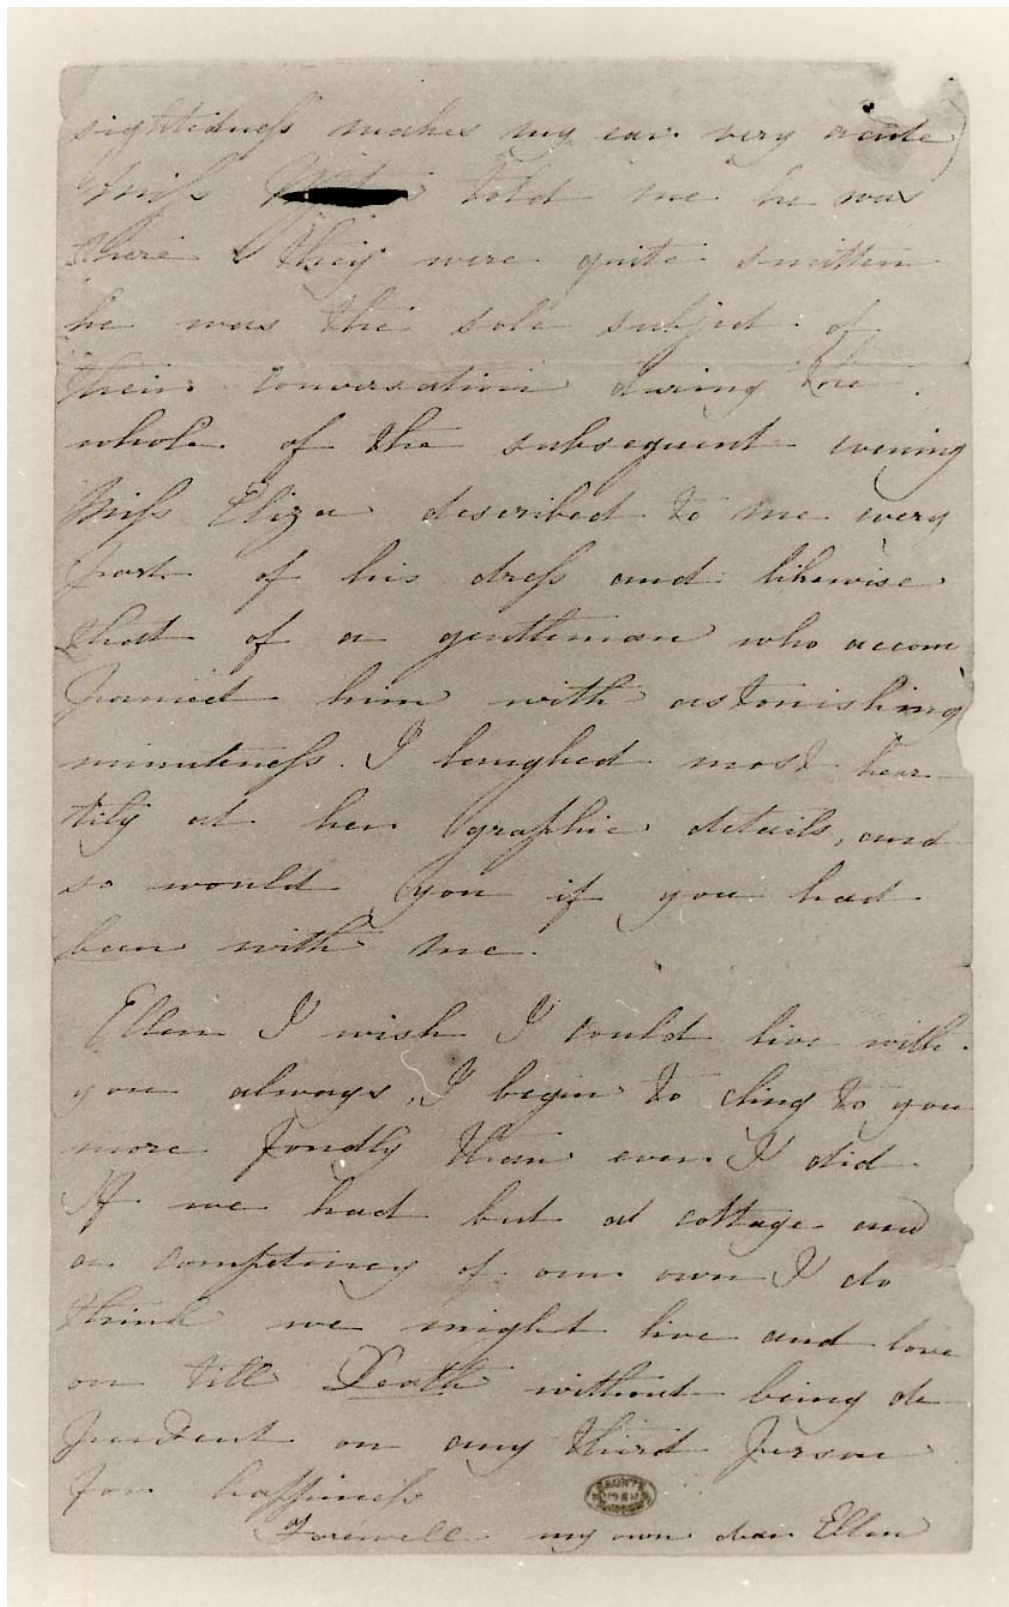 sightedness makes my ear very acute)
Miss told me he was
there & they were quite smitten
he was the sole subject of
their conversation during the
whole of the subsequent evening
Miss Eliza described to me every
part of his dress and likewise
that of a gentleman who accom
panied him with astonishing
minuteness. I laughed most hear
tily at her graphic details, and
so would you if you had
been with me.
Ellen I wish I could live with
you always, I begin to cling to you
more fondly than ever I did
If we had but a cottage and
a competency of our own I do
think we might live and love
on till Death without being de
pendent on any third person
for happiness
Farewell my own dear Ellen